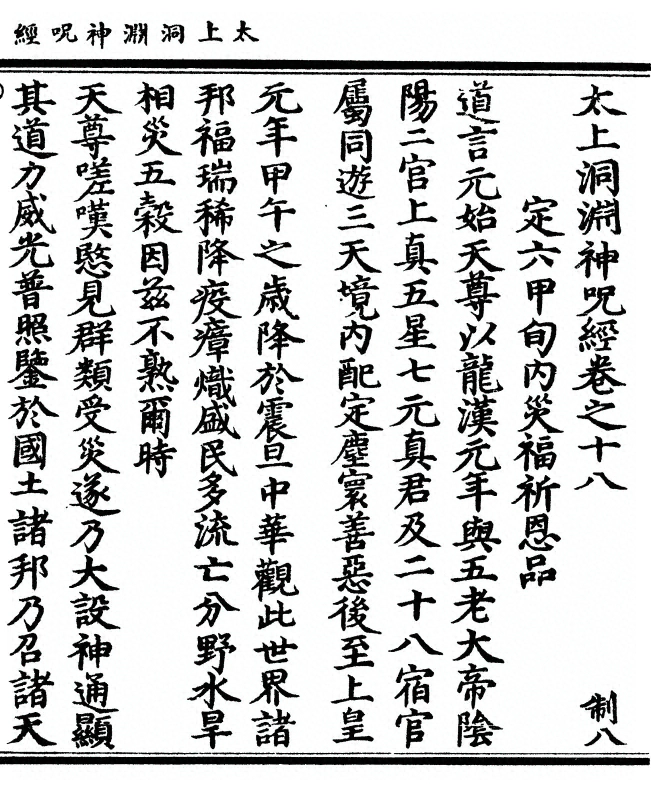 太上洞淵神呪經
太上洞淵神呪經卷之十八
制八
定六甲旬內災福祈恩品
道言元始天尊以龍漢元年與五老大帝陰
陽二官上真五星七元真君及二十八宿官
屬同遊三天境內配定塵寰善惡後至上皇
元年甲午之歲降於震旦中華觀此世界諸
邦福瑞稀降疫瘴熾盛民多流亡分野水旱
相災五穀因茲不熟爾時
天尊嗟嘆愍見群類受災遂乃大設神通顯
其道力威光普照鑒於國土諸邦乃召諸天